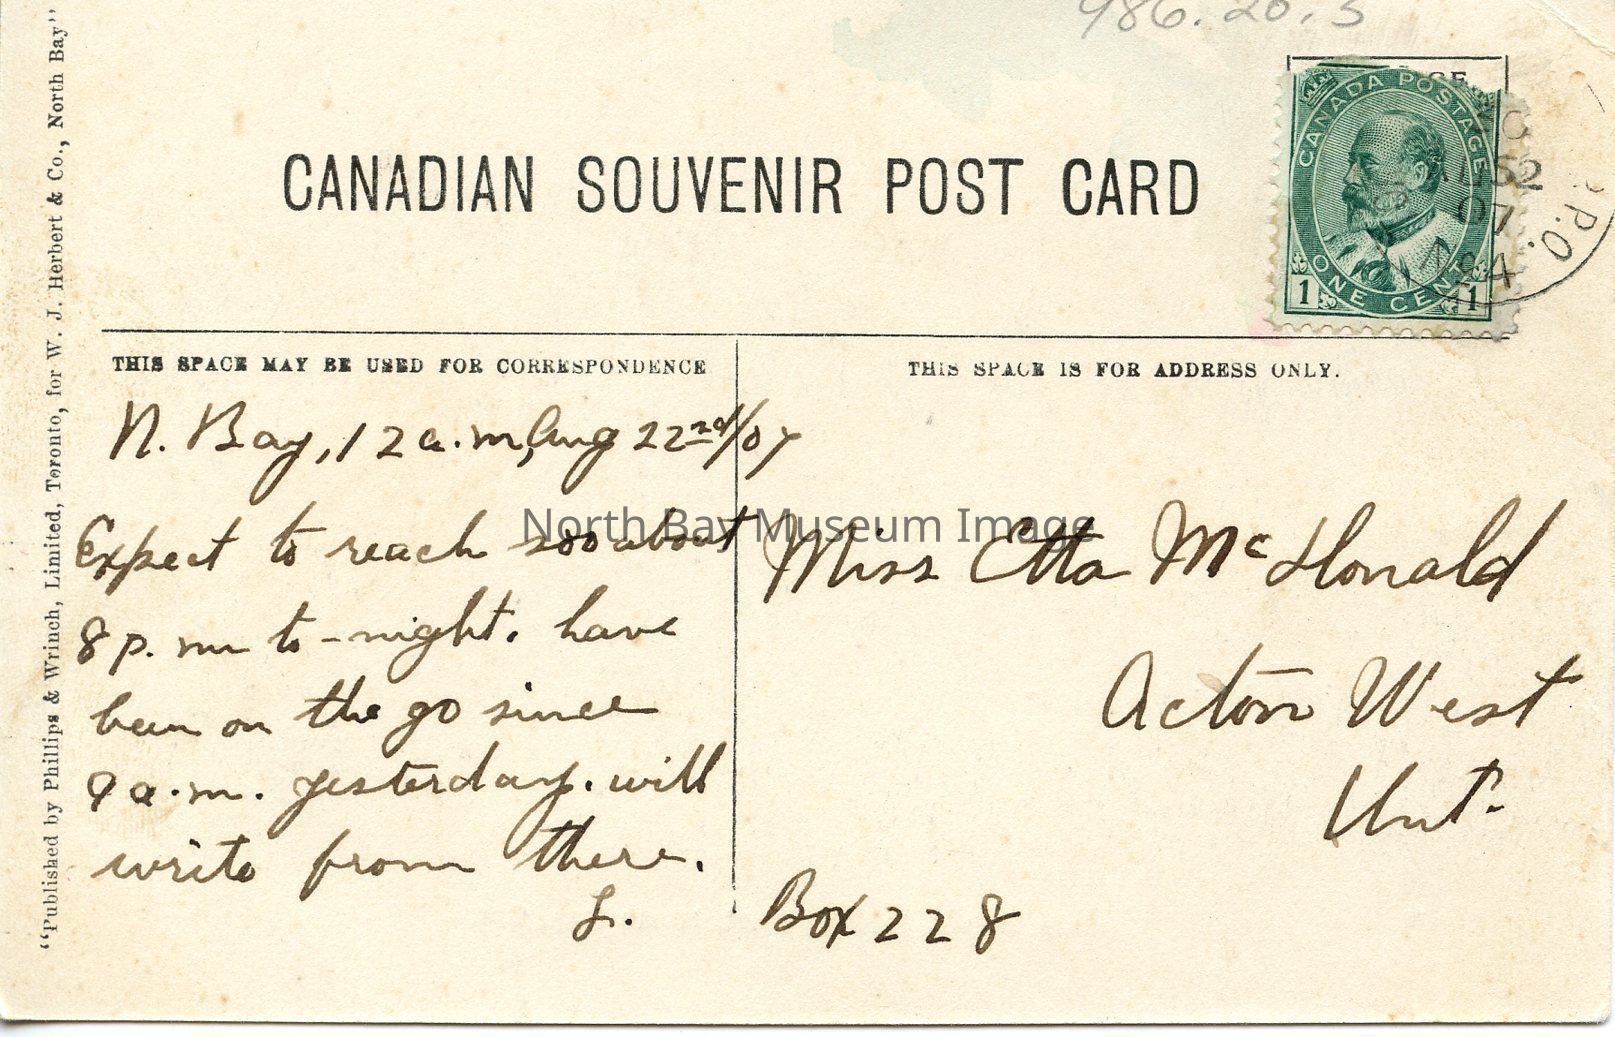 986.20.3
CANADIAN SOUVENIR POST CARD
CANADA POSTAGE
ONE CENT
1 1
07
P.O.
THIS SPACE MAY BE USED FOR CORRESPONDENCE
THIS SPACE IS FOR ADDRESS ONLY.
N. Bay, 12 a.m, Aug 22nd/07
Expect to reach soo about
8 p.m to-night. have
been on the go since
9 a.m. yesterday. will
write from there.
L.
Miss Etta McDonald
Acton West
Ont.
Box 228
"Published by Phillips & Wrinch, Limited, Toronto, for W. J. Herbert & Co., North Bay"
North Bay Museum Image